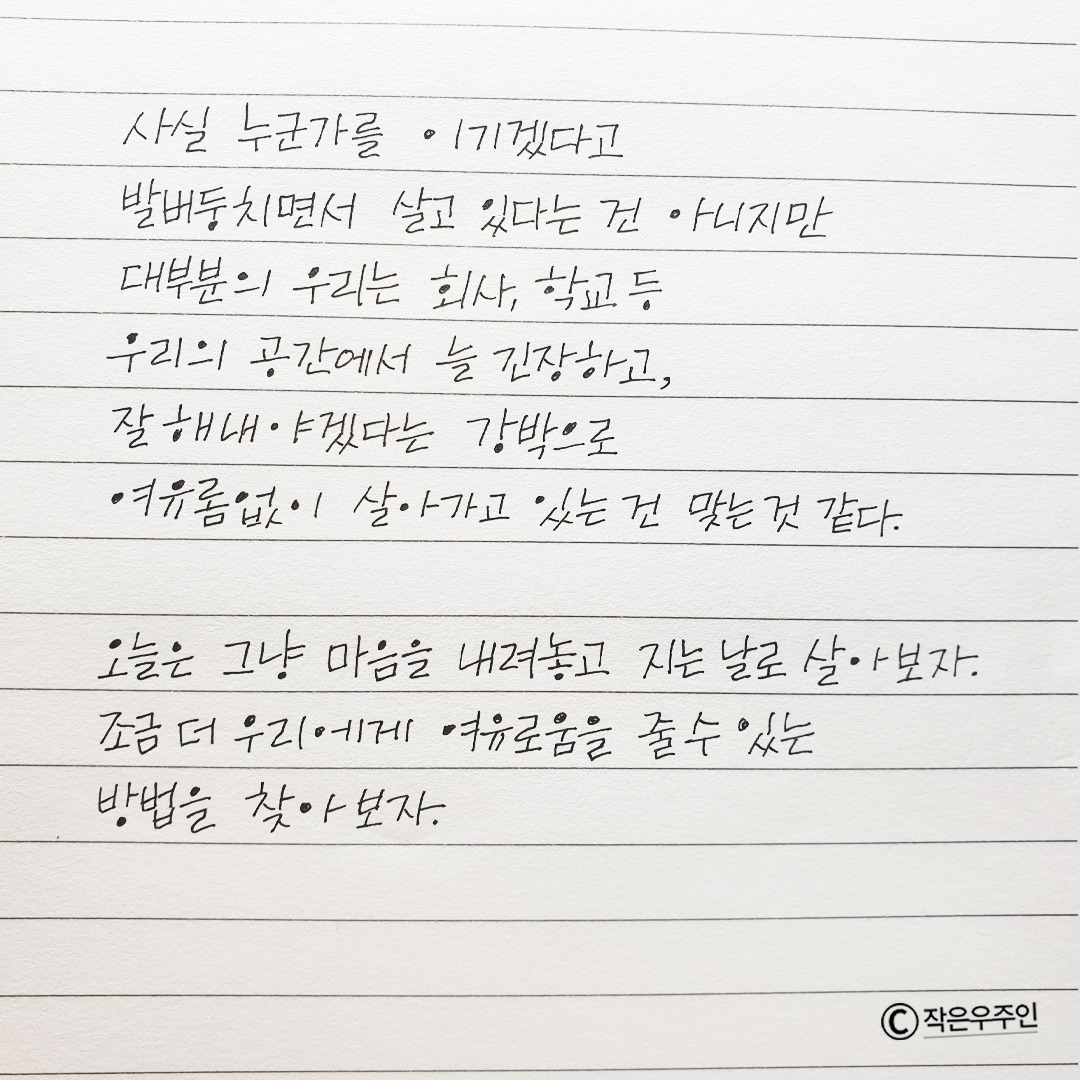 사실 누군가를 이기겠다고
발버둥치면서 살고 있다는 건 아니지만
대부분의 우리는 회사, 학교 등
우리의 공간에서 늘 긴장하고,
잘 해내야겠다는 강박으로
여유롬없이 살아가고 있는 건 맞는 것 같다.
오늘은 그냥 마음을 내려놓고 지는 날로 살아보자.
조금 더 우리에게 여유로움을 줄 수 있는
방법을 찾아보자.
© 작은우주인